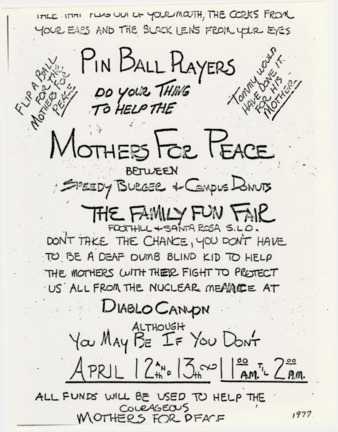 TAKE THAT PLUG OUT OF YOUR MOUTH, THE CORKS FROM
YOUR EARS AND THE BLACK LENS FROM YOUR EYES
PIN BALL PLAYERS
DO YOUR THING
TO HELP THE
FLIP A BALL
FOR THE
MOTHERS FOR
PEACE
TOMMY WOULD
HAVE DONE IT
FOR HIS
MOTHER
MOTHERS FOR PEACE
BETWEEN
SPEEDY BURGER & CAMPUS DONUTS
THE FAMILY FUN FAIR
FOOTHILL & SANTA ROSA S.L.O.
DON'T TAKE THE CHANCE, YOU DON'T HAVE
TO BE A DEAF DUMB BLIND KID TO HELP
THE MOTHERS WITH THEIR FIGHT TO PROTECT
US ALL FROM THE NUCLEAR MENANCE AT
DIABLO CANYON
ALTHOUGH
YOU MAY BE IF YOU DON'T
APRIL 12th AND 13th 11 00 A.M. TIL 2 00 A.M.
ALL FUNDS WILL BE USED TO HELP THE
COURAGEOUS
MOTHERS FOR PEACE
1977